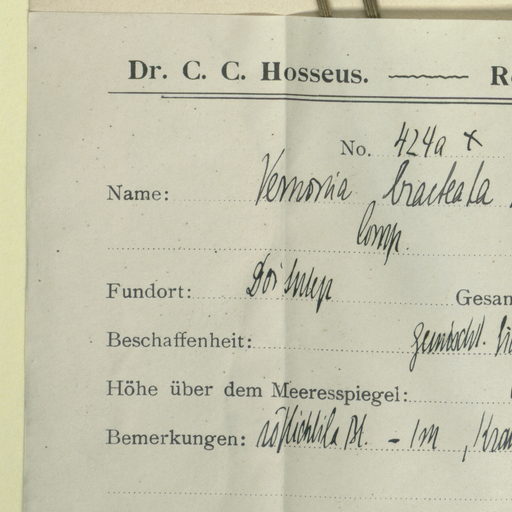 Dr. C. C. Hosseus.
No. 424a x
Name: Vernonia bracteata
Comp.
Fundort: Doi Sutep Gesam
Beschaffenheit: gemischt.
Höhe über dem Meeresspiegel:
Bemerkungen: rötlichlila Bl. - 1m, Krau